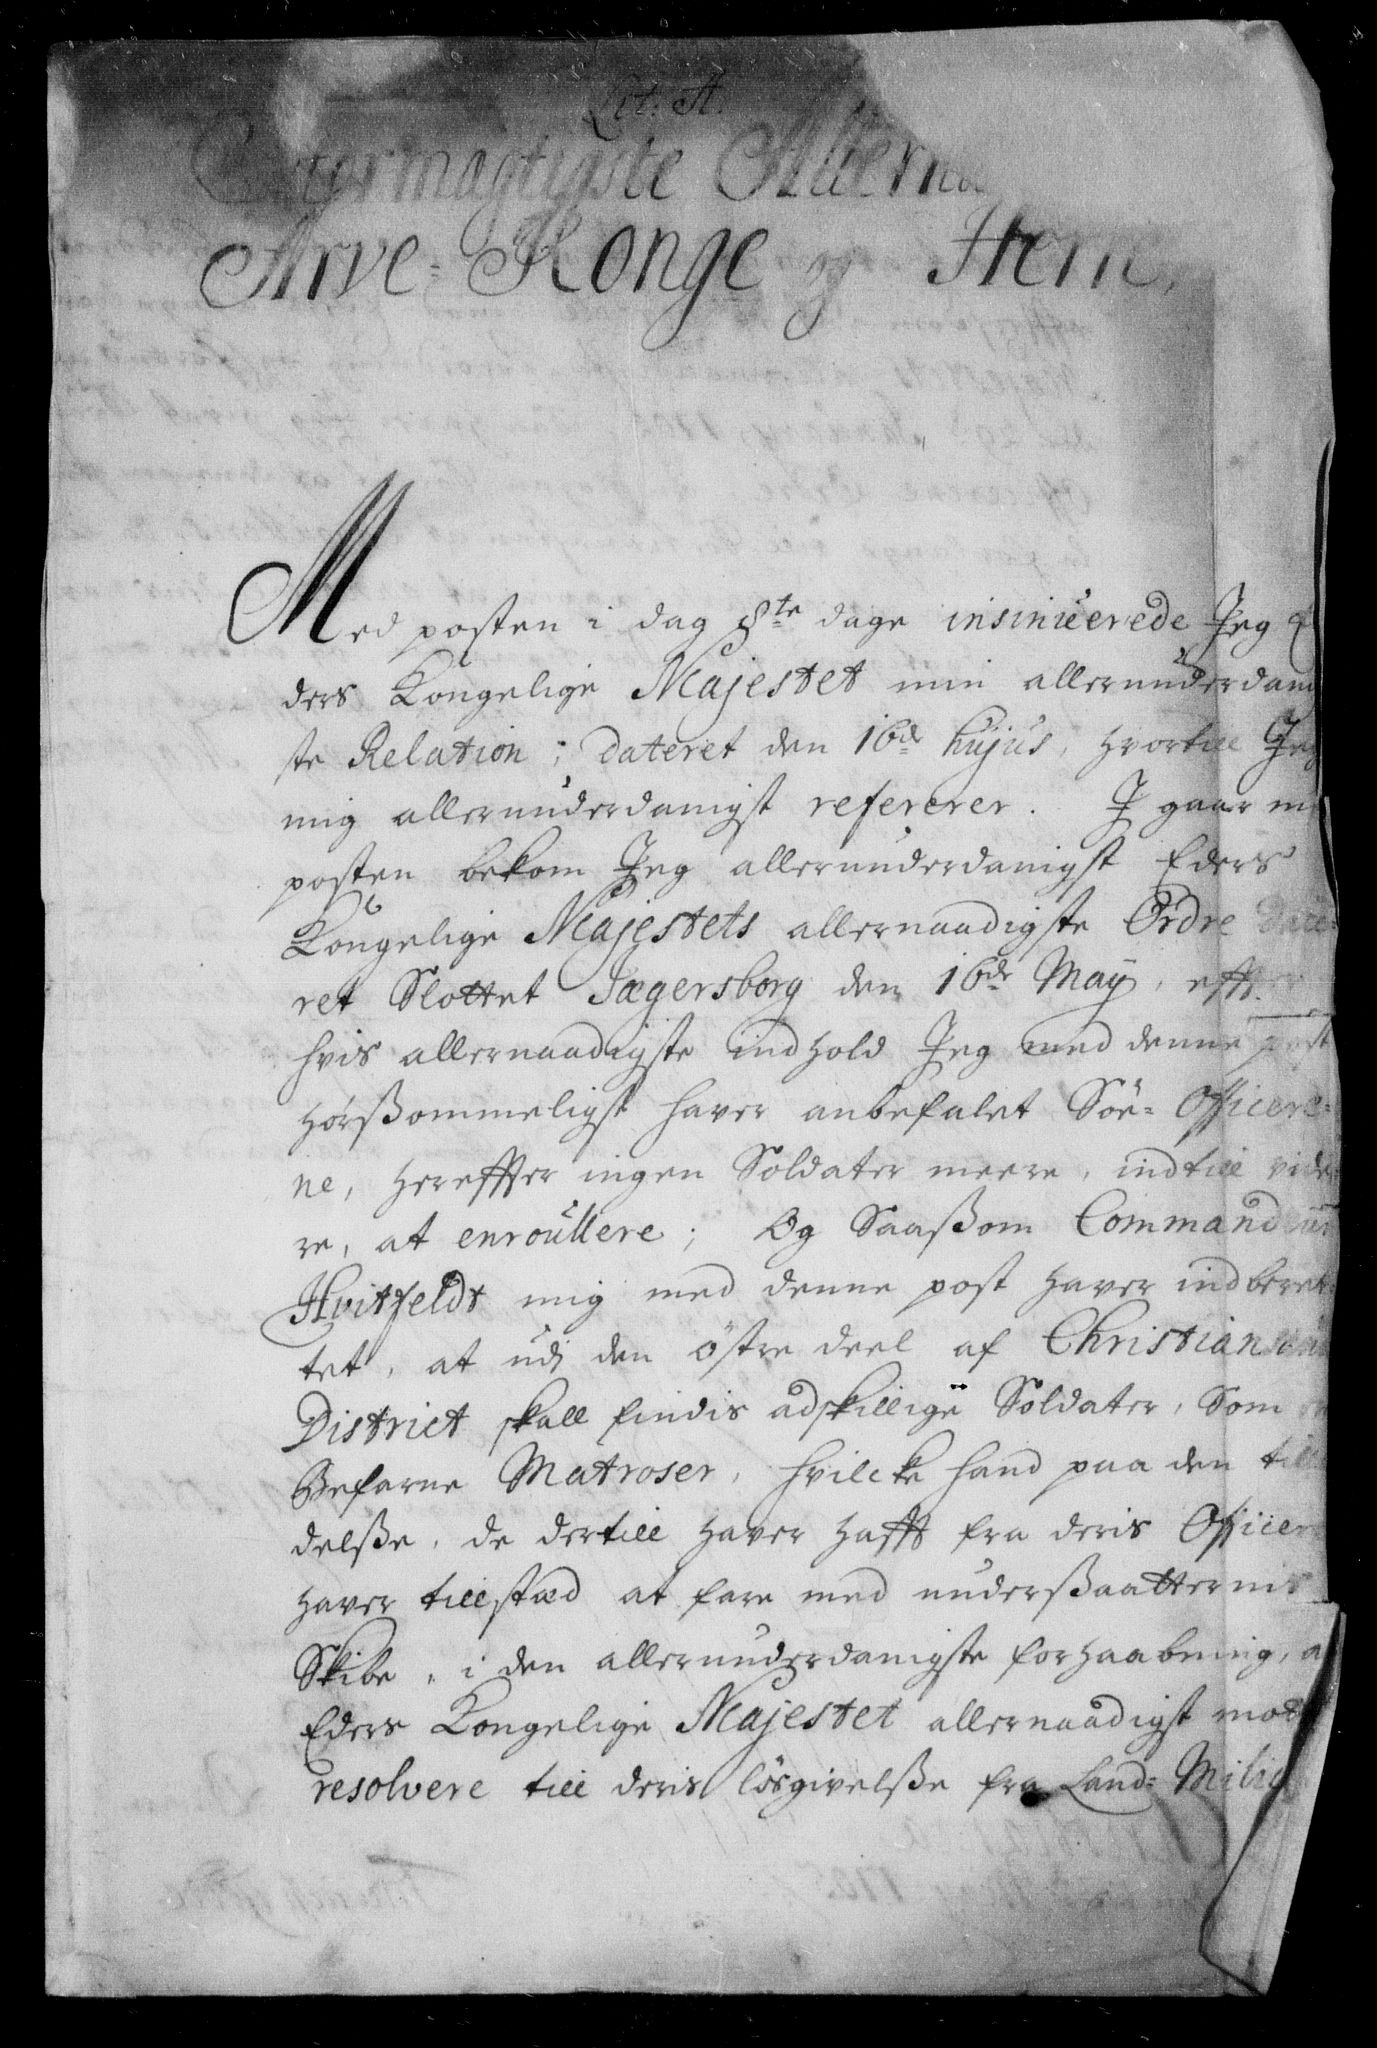 Lit: A.
Stormægtigste Allernaa
Arve-Konge og Herre,
Med posten i dag 8te dage insinüerede Jeg E
ders Kongelige Majestet min allerunderdanig
ste Relation; dateret den 16de hujus, hvortill Jeg
mig allerunderdanigst refererer. J gaar m
posten bekom Jeg allerunderdanigst Eders
Kongelige Majestets allernaadigste Ordre date=
ret Slottet Jægersborg den 16de Maÿ, effter
hvis allernaadigste indhold Jeg med denne post
hørsommeligst haver anbefalet Söe-Officere=
ne, hereffter ingen Soldater meere, indtill vide
re, at enroullere; Og Saasßom Commandeur
Hvitfeldt mig med denne post haver indberet=
tet, at udj den östre deel af Christiansand
District skall findis adskillige Soldater, Som er
Befarne Matroser, hvilcke hand paa den till
delsße, de dertill haver hafft fra deris Officere
haver tillstæd at fare med undersßaatternis
Skibe, i den allerunderdanigste forhaabning, a
Eders Kongelige Majestet allernaadigst mot
resolvere till deris lösgivelsße fra Land-Milic